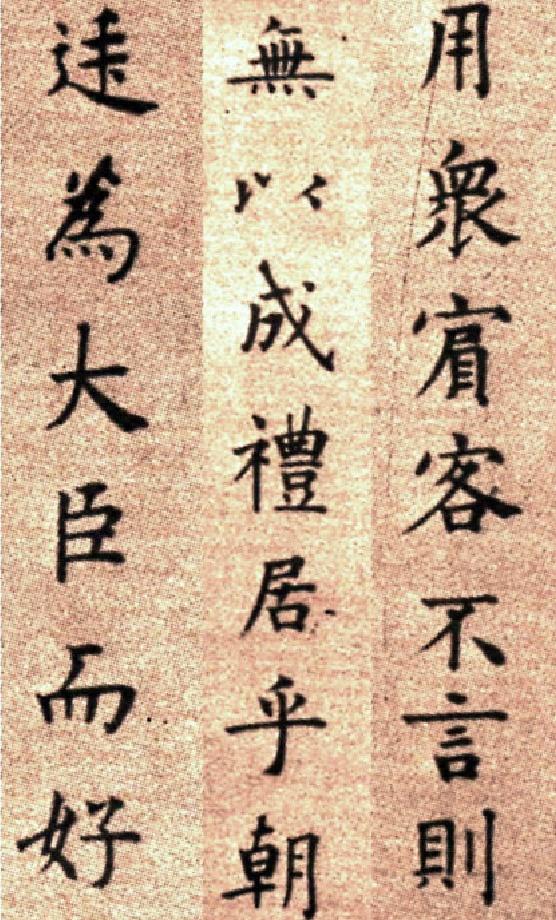 用衆賔客不言則
無以成禮居乎朝
廷為大臣而好